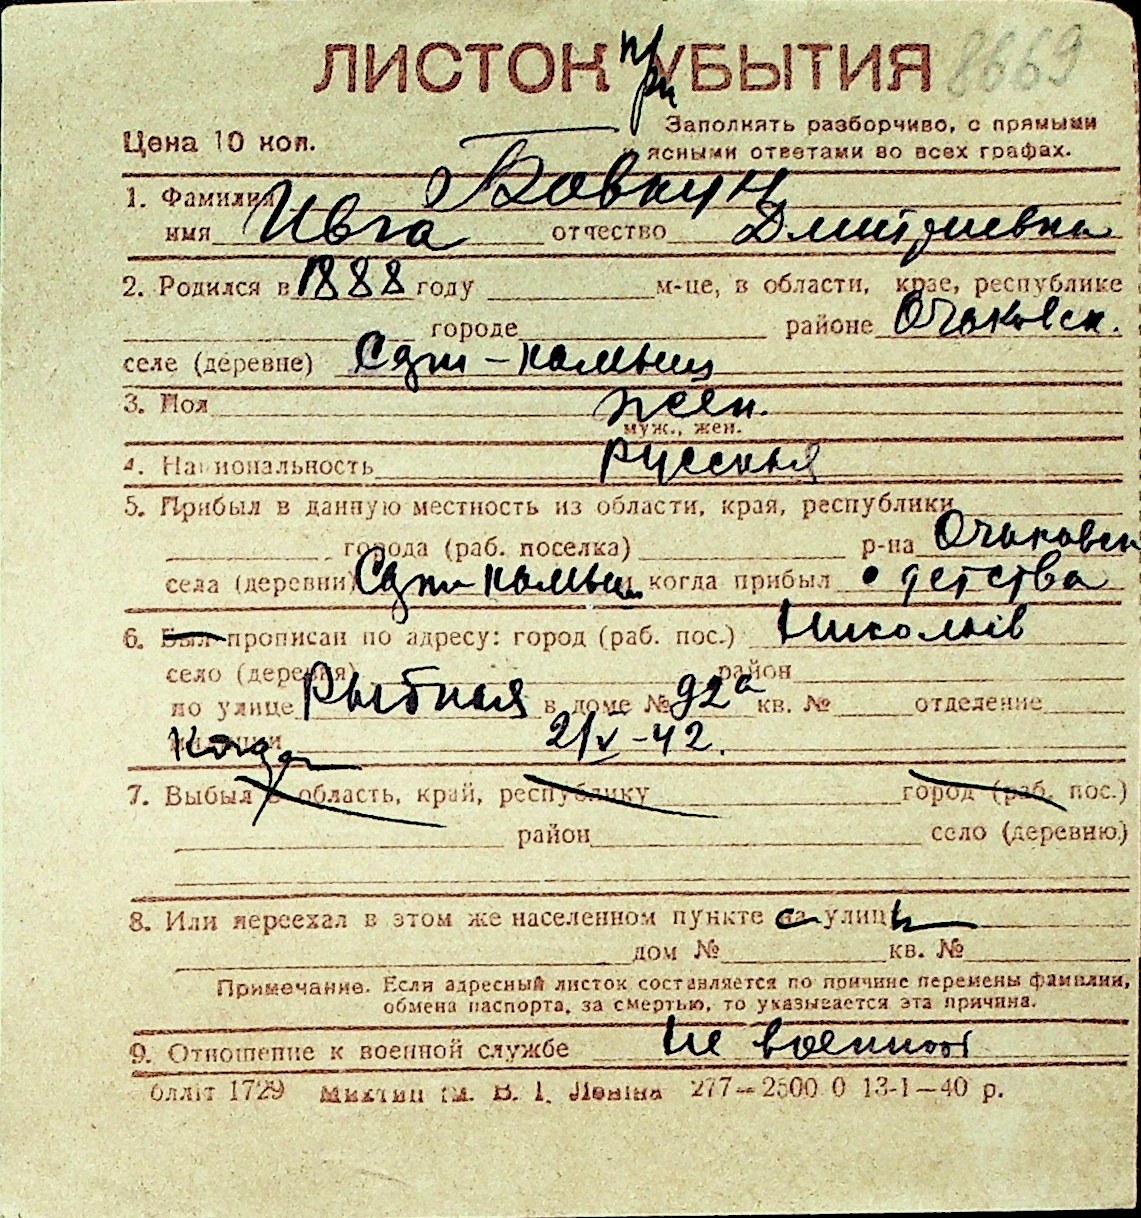 ЛИСТОК при УБЫТИЯ 8669
Цена 10 коп.
Заполнять разборчиво, с прямыми
и ясными ответами во всех графах.
1. Фамилия Бовкун
имя Ивга отчество Дмитриевна
2. Родился в 1888 году м-це, в области, крае, республике
городе районе Очаковск.
селе (деревне)
3. Пол жен.
муж., жен.
4. Национальность русская
5. Прибыл в данную местность из области, края, республики
города (раб. поселка) р-на Очаковск
села (деревни) когда прибыл с детства
6. Был прописан по адресу: город (раб. пос.) Николаев
село (деревня) район
по улице Рыбная в доме № 92а кв. № отделение
Когда 21/V-42.
7. Выбыл в область, край, республику город (раб. пос.)
район село (деревню.)
8. Или переехал в этом же населенном пункте с улицы
дом № кв. №
Примечание. Если адресный листок составляется по причине перемены фамилии,
обмена паспорта, за смертью, то указывается эта причина.
9. Отношение к военной службе не военнооб
1729 В. І. Леніна 277—2500 0 13-1—40 р.